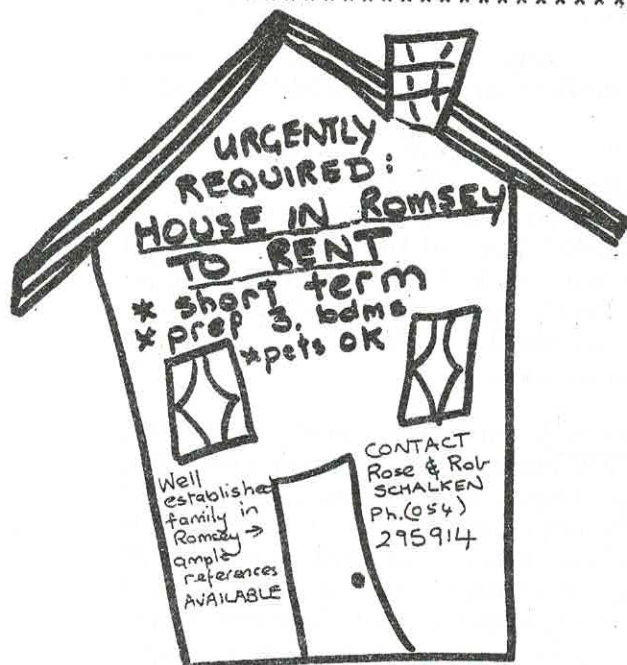 URGENTLY
REQUIRED:
HOUSE IN ROMSEY
TO RENT
* short term
* pref 3. bdms
* pets OK
Well
established
family in
Romsey →
ample
references
AVAILABLE
CONTACT
Rose & Rob
SCHALKEN
Ph.(054)
295914